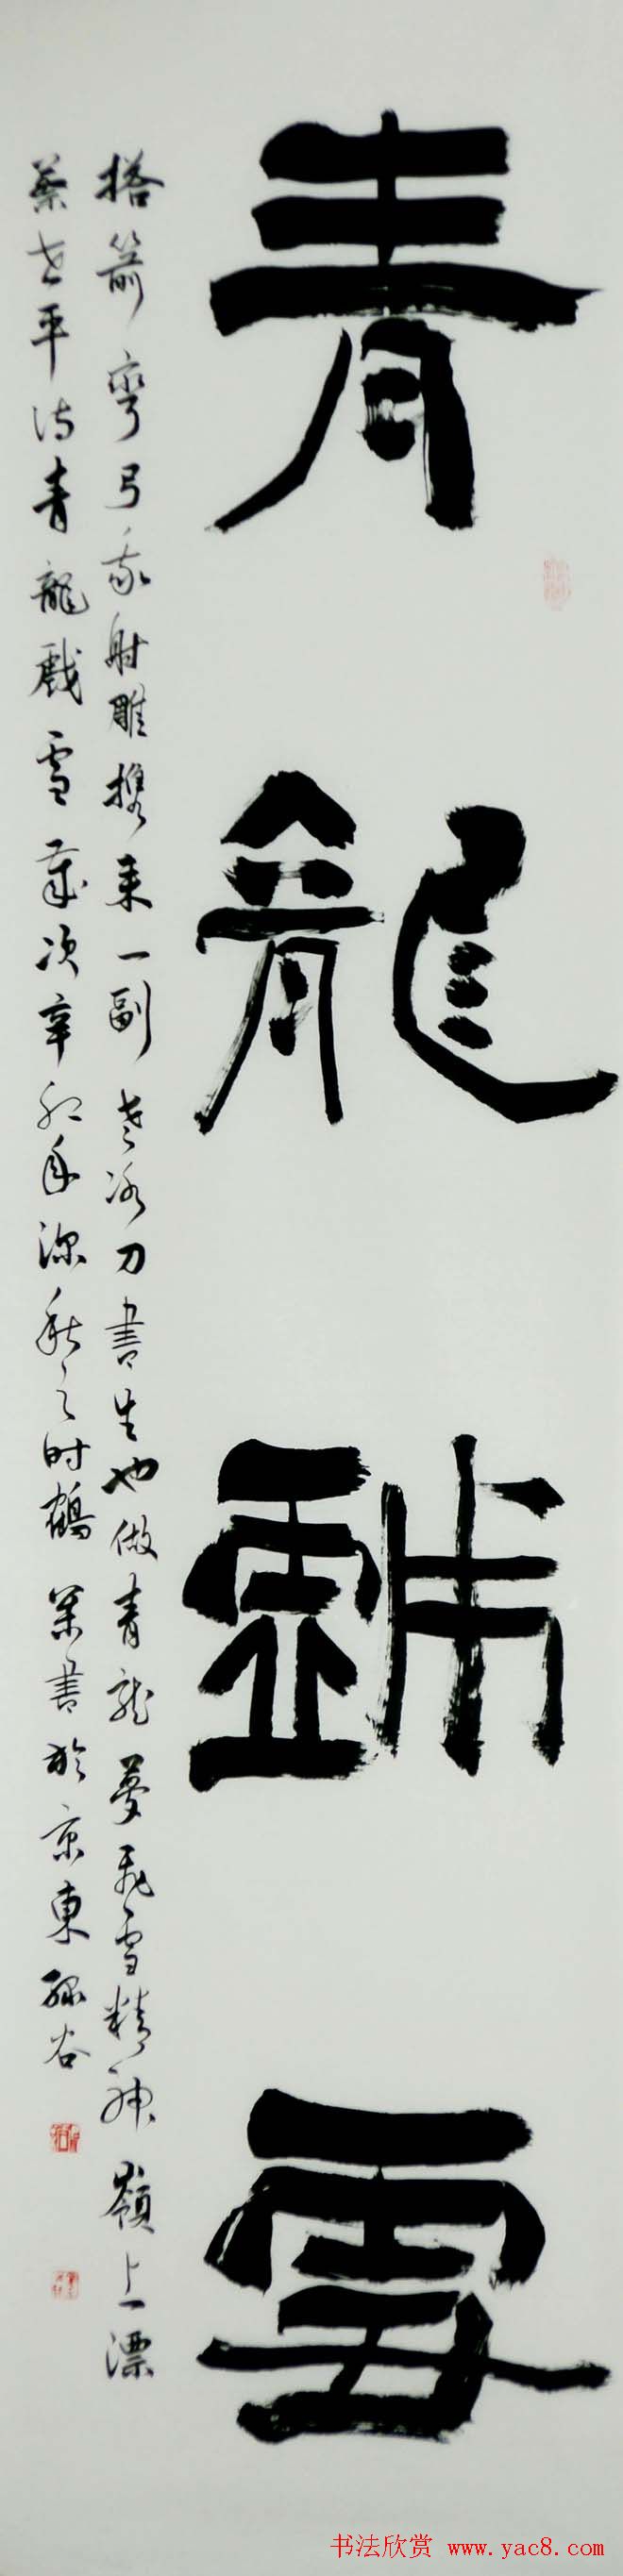 青龍戲雪
搭箭彎弓我射雕攜來一副老冰刀書生也做青龍夢飛雪精神嶺上漂
蔡世平詩青龍戲雪歲次辛卯年深秋之時鶴業書於京東孫谷
书法欣赏 www.yac8.com